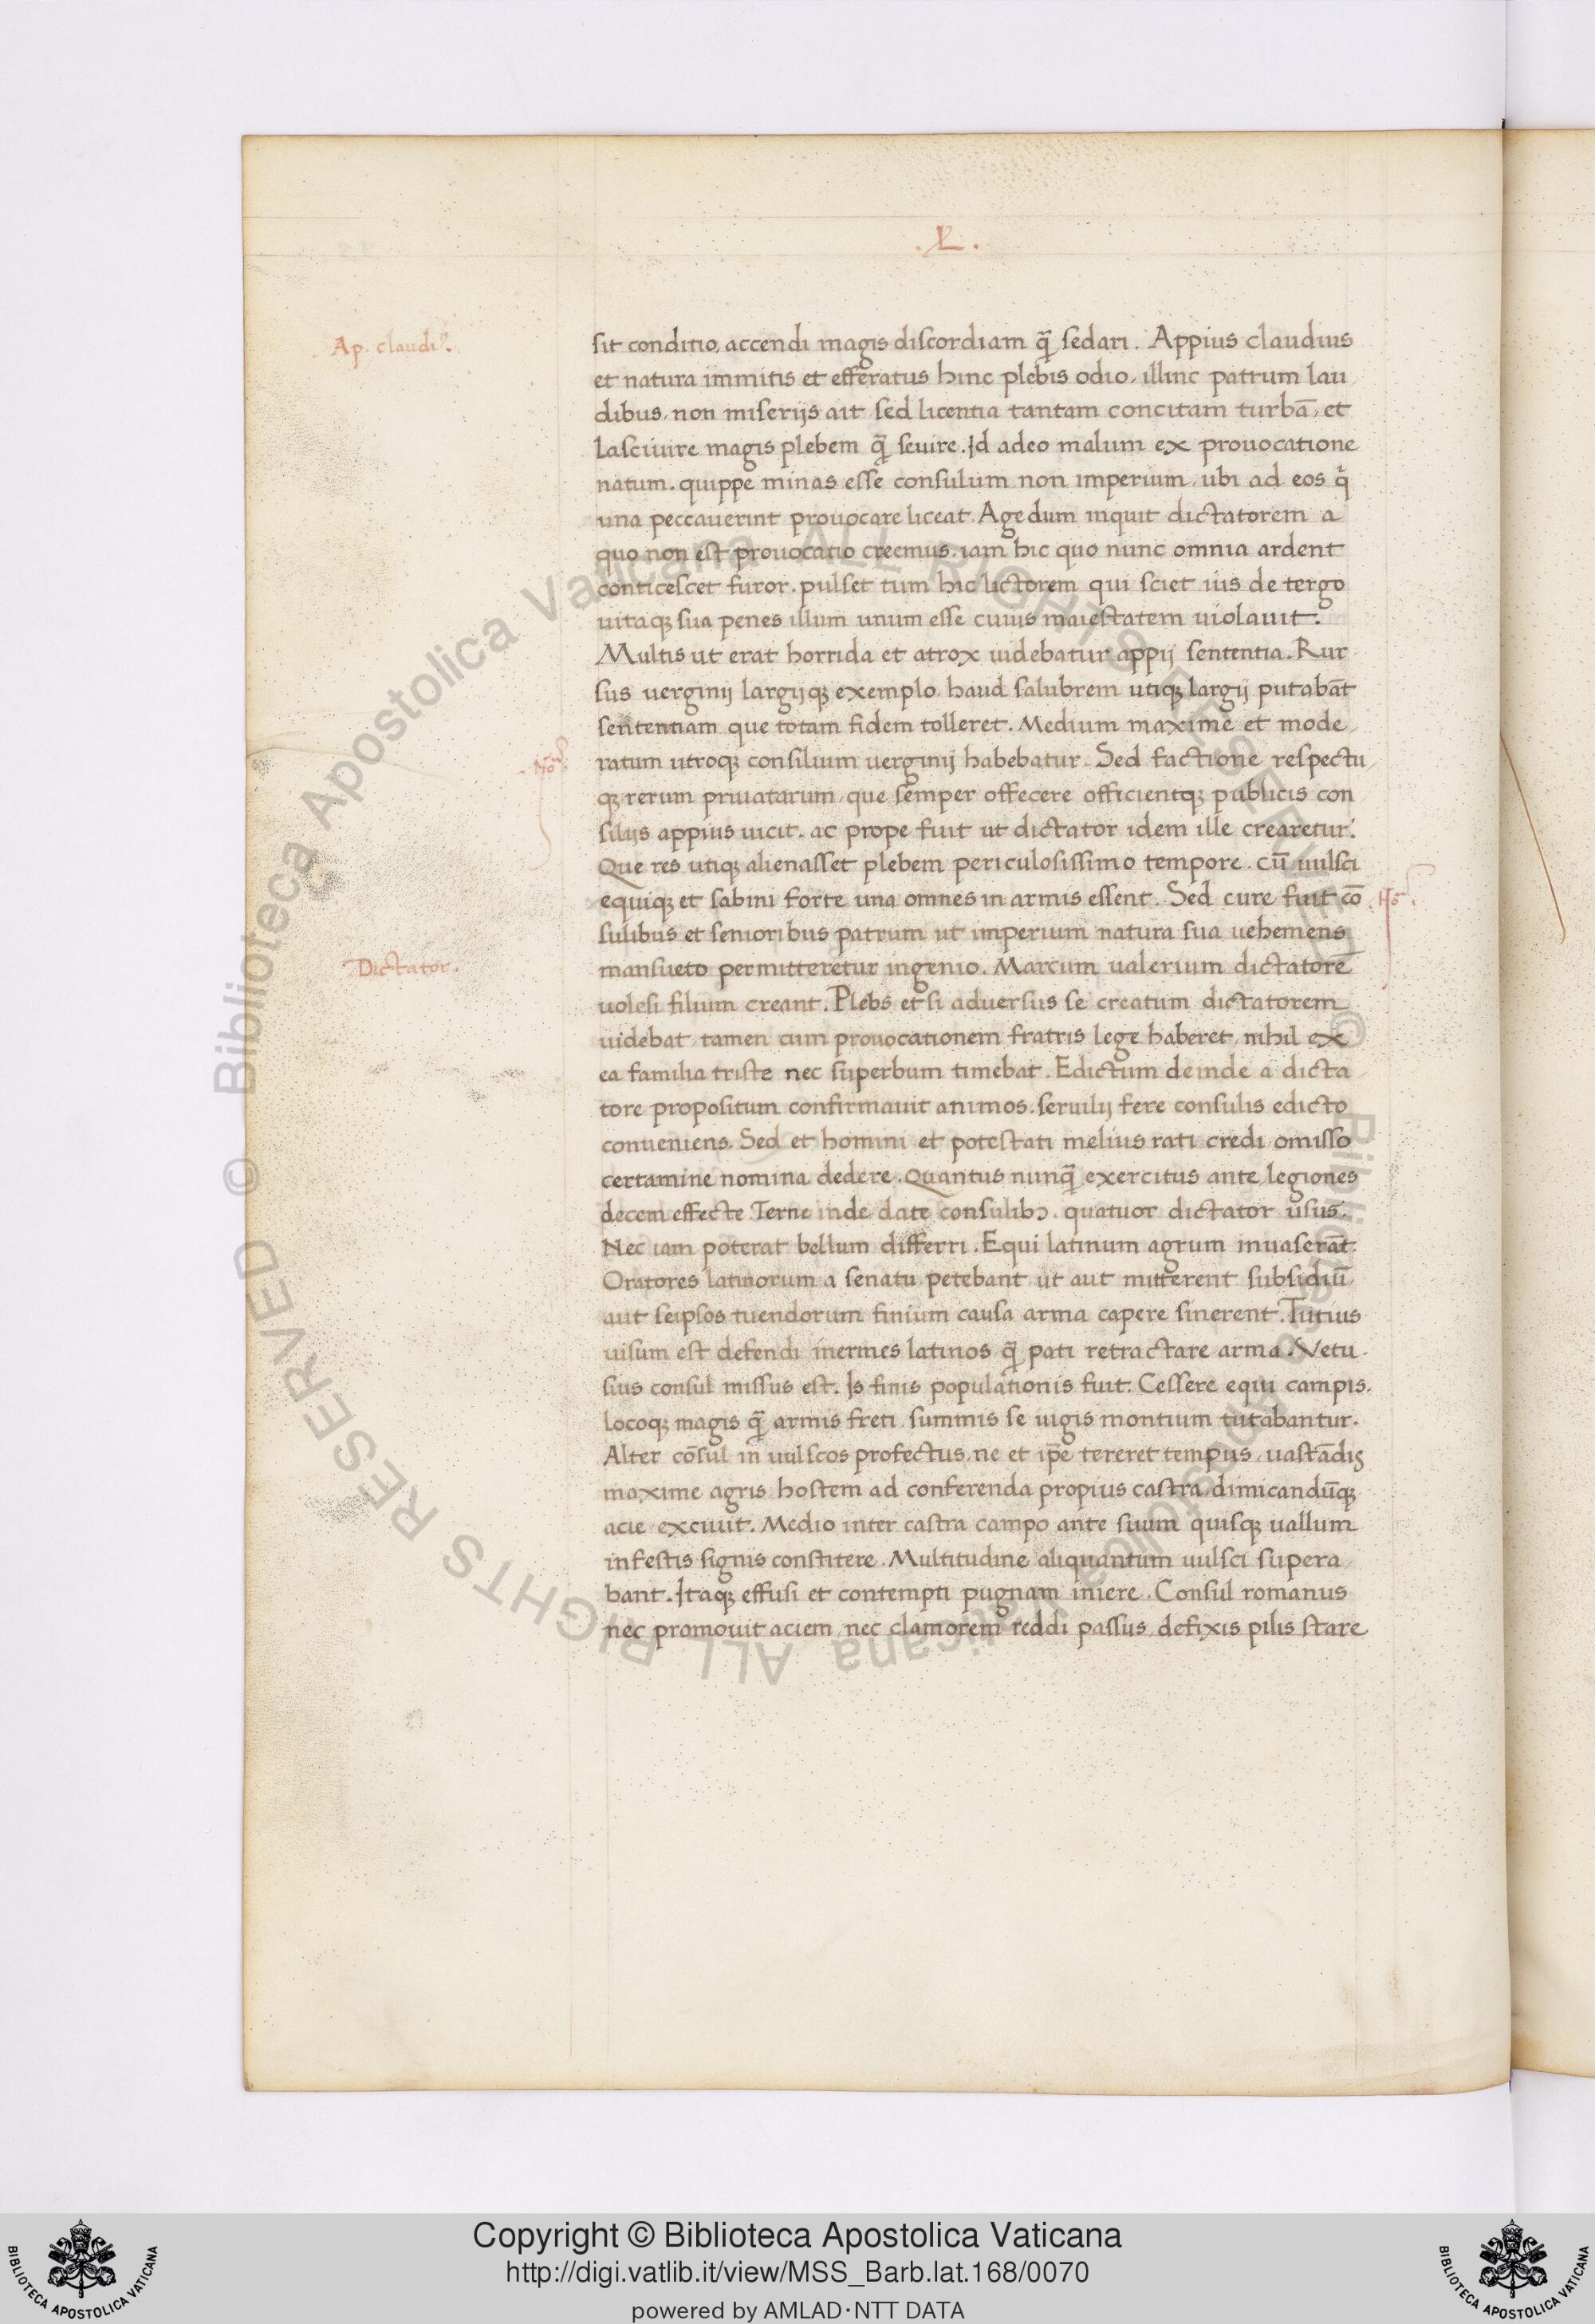 .L.
Ap. claudiꝰ.
sit conditio, accendi magis discordiam q̄ sedari. Appius claudius
et natura immitis et efferatus hinc plebis odio, illinc patrum lau
dibus, non miserijs ait sed licentia tantam concitam turbā, et
lasciuire magis plebem q̄ seuire. Id adeo malum ex prouocatione
natum. quippe minas esse consulum non imperium, ubi ad eos q̇
una peccauerint prouocare liceat. Agedum inquit dictatorem a
quo non est prouocatio creemus. iam hic quo nunc omnia ardent
conticescet furor. pulset tum hic lictorem qui sciet ius de tergo
uitaqꝫ sua penes illum unum esse cuius maiestatem uiolauit.
Multis ut erat horrida et atrox uidebatur appij sententia. Rur
sus uerginij largijqꝫ exemplo, haud salubrem utiqꝫ largij putabāt
sententiam que totam fidem tolleret. Medium maxime et mode
ratum utroqꝫ consilium uerginij habebatur. Sed factione respectu
qꝫ rerum priuatarum, que semper offecere officientqꝫ publicis con
silijs appius uicit. ac prope fuit ut dictator idem ille crearetur.
Que res utiqꝫ alienasset plebem periculosissimo tempore. cū uulsci
equiqꝫ et sabini forte una omnes in armis essent. Sed cure fuit cō
sulibus et senioribus patrum ut imperium natura sua uehemens
Dictator.
mansueto permitteretur ingenio. Marcum ualerium dictatorē
uolesi filium creant. Plebs etsi aduersus se creatum dictatorem
uidebat, tamen cum prouocationem fratris lege haberet, nihil ex
ea familia triste nec superbum timebat. Edictum deinde a dicta
tore propositum confirmauit animos. seruilij fere consulis edicto
conueniens. Sed et homini et potestati melius rati credi omisso
certamine nomina dedere. Quantus nunq̄ exercitus ante, legiones
decem effecte. Terne inde date consulibꝫ. quatuor dictator usus.
Nec iam poterat bellum differri. Equi latinum agrum inuaserāt.
Oratores latinorum a senatu petebant ut aut mitterent subsidiū
aut seipsos tuendorum finium causa arma capere sinerent. Tutius
uisum est defendi inermes latinos q̄ pati retractare arma. Vetu
sius consul missus est. Is finis populationis fuit. Cessere equi campis.
locoqꝫ magis q̄ armis freti, summis se iugis montium tutabantur.
Alter cōsul in uulscos profectus, ne et ip̄e tereret tempus, uastādis
maxime agris hostem ad conferenda propius castra, dimicandūqꝫ
acie exciuit. Medio inter castra campo ante suum quisqꝫ uallum
infestis signis constitere. Multitudine aliquantum uulsci supera
bant. Itaqꝫ effusi et contempti pugnam iniere. Consul romanus
nec promouit aciem, nec clamorem reddi passus, defixis pilis stare
© Biblioteca Apostolica Vaticana ALL RIGHTS RESERVED
© Biblioteca Apostolica Vaticana ALL RIGHTS RESERVED
Copyright © Biblioteca Apostolica Vaticana
http://digi.vatlib.it/view/MSS_Barb.lat.168/0070
powered by AMLAD·NTT DATA
BIBLIOTECA APOSTOLICA VATICANA
BIBLIOTECA APOSTOLICA VATICANA